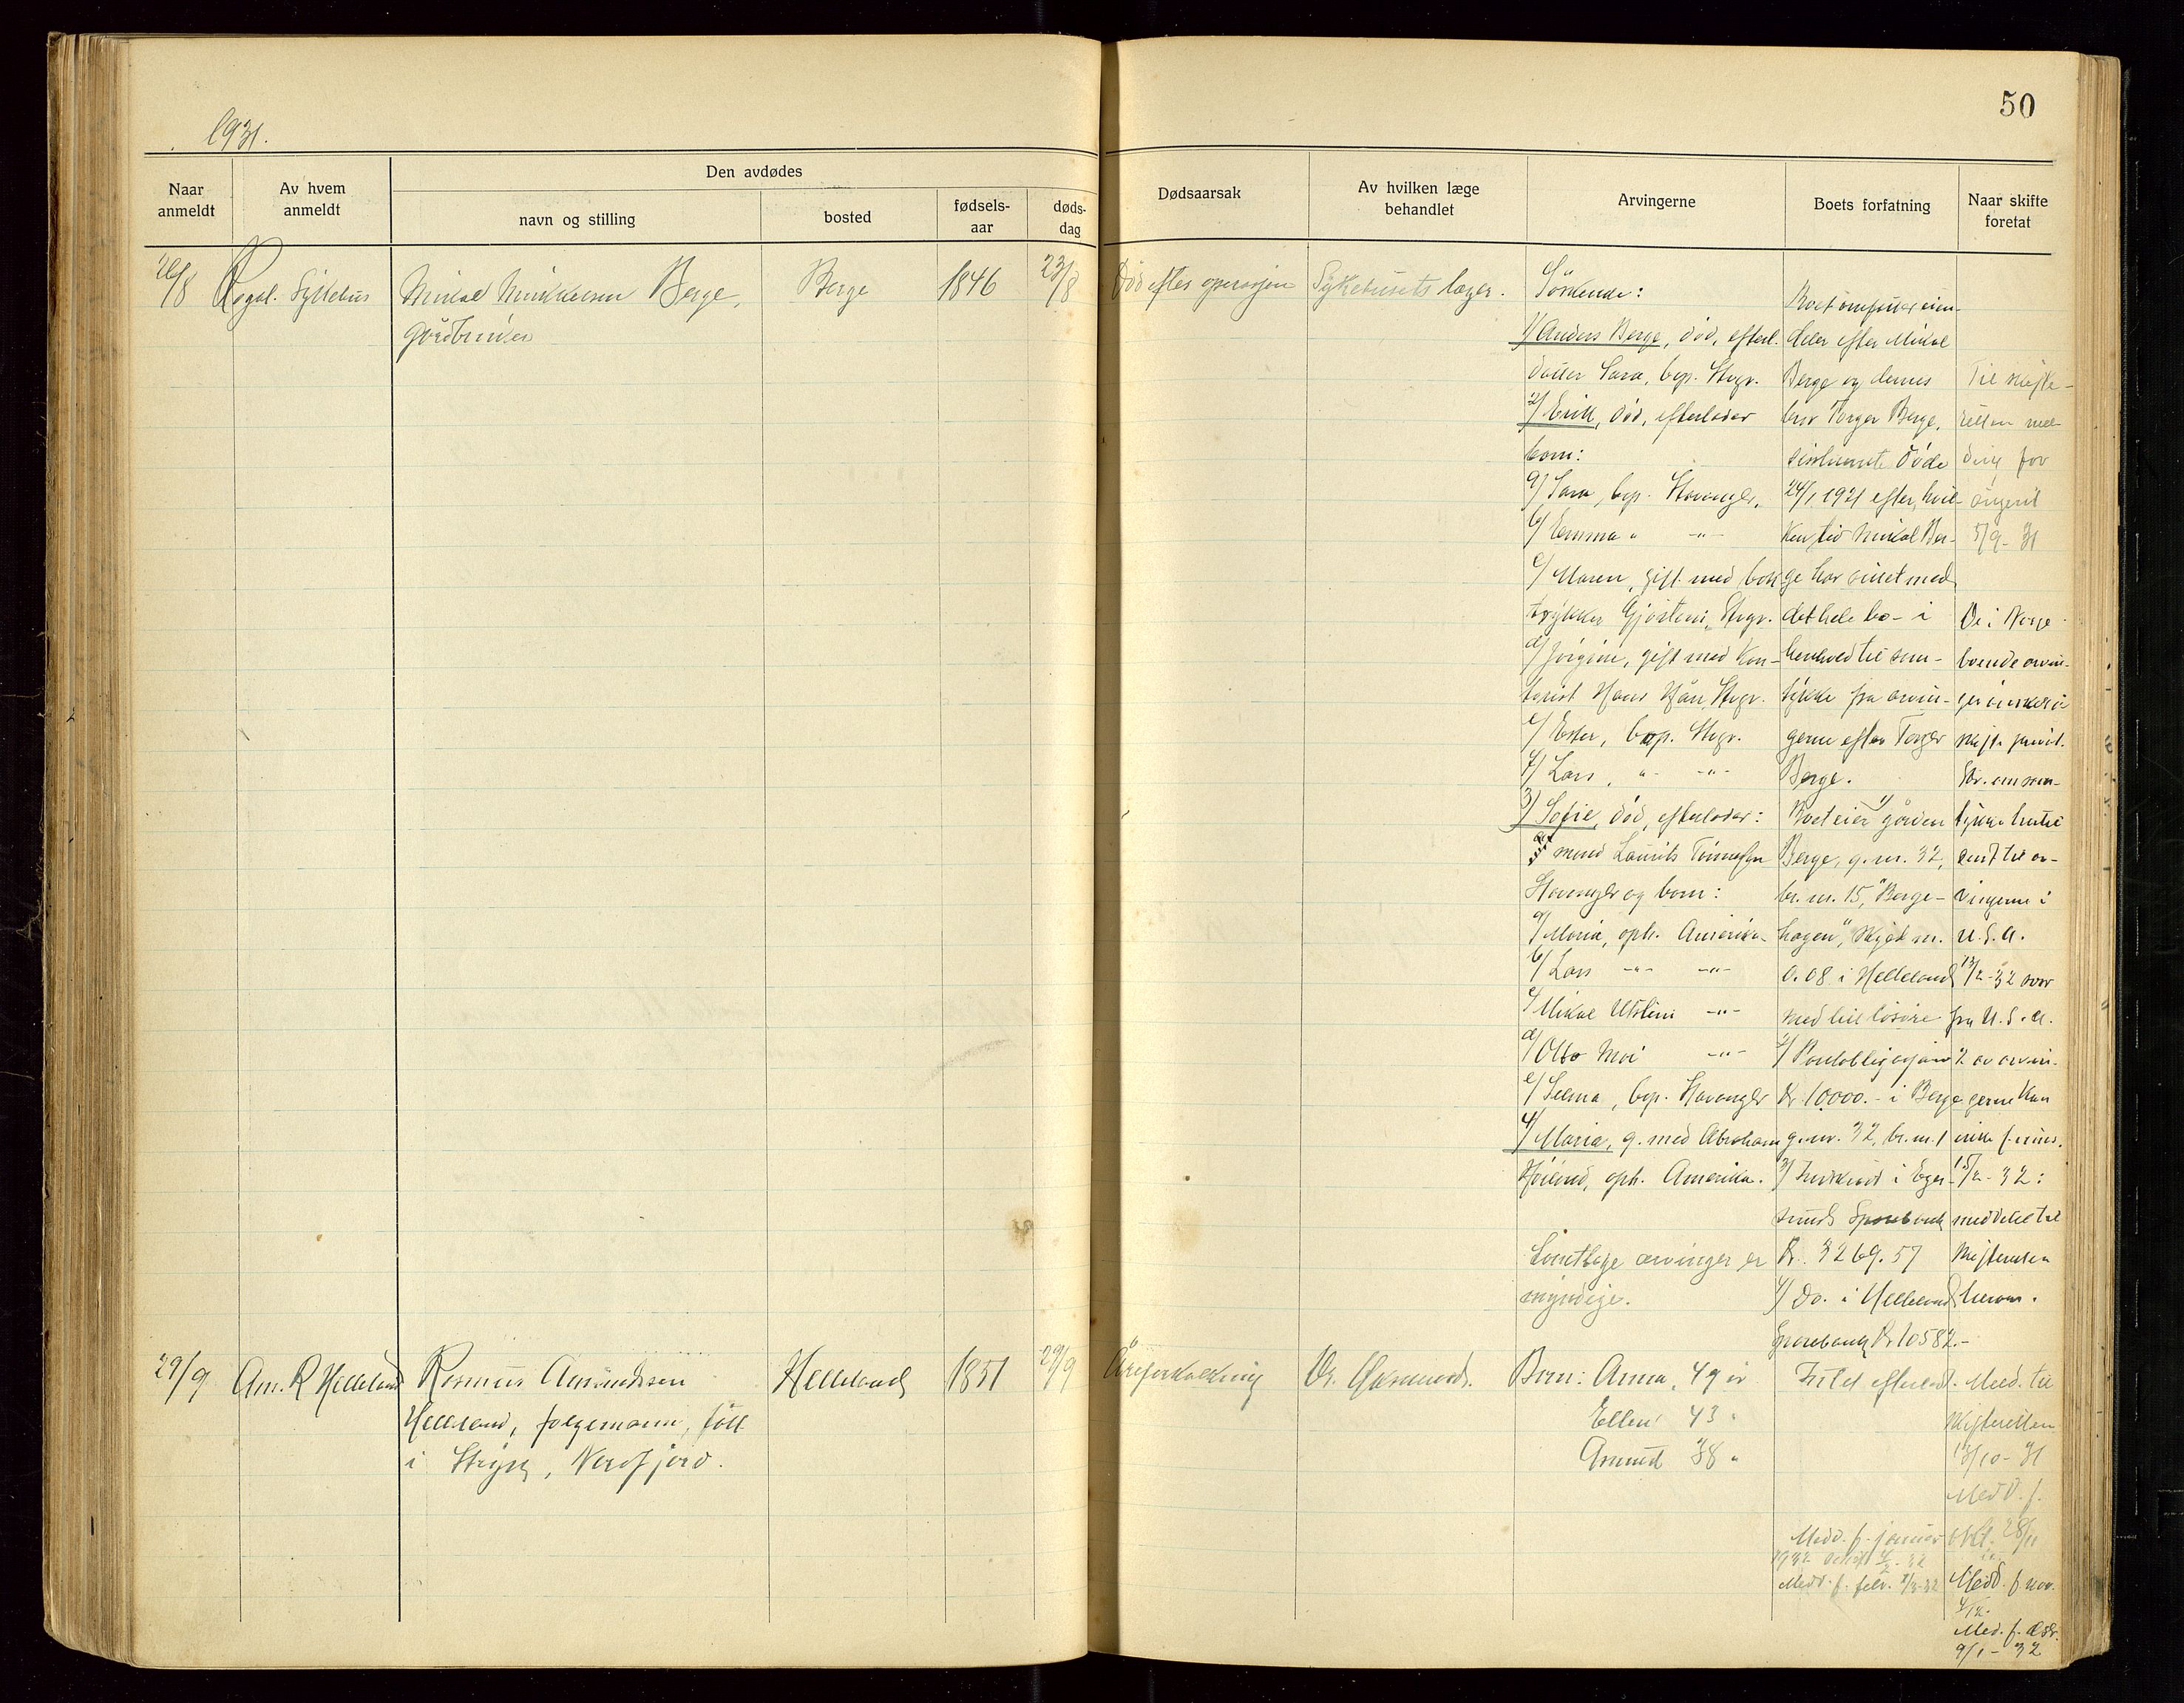 1931.
50
Naar anmeldt
Av hvem anmeldt
Den avdødes
navn og stilling
bosted
fødsels-aar
døds-dag
Dødsaarsak
Av hvilken læge behandlet
Arvingerne
Boets forfatning
Naar skifte foretat
26/8
Rogal. Sykehus
Mikal Mikkelsen Berge,
gårdbruker
Berge
1846
23/8
Død efter operasjon
Sykehusets læger.
Søskende:
1/ Anders Berge, død, efterl.
datter Sara, bop. Stvgr.
2/ Erik, død, efterlader
barn:
a/ Sara, bop. Stavanger,
b/ Emma " -"-
c/ Maren, gift med bok
trykker Gjøsteni, Stvgr.
d/ Jørgine, gift med Kon-
torist Hans Hån, Stvgr.
e/ Ester, bop. Stvgr.
f/ Lars, " -"-
3/ Sofie, død, efterlader:
mand Laurits Tønnesen
Stavanger og barn:
a/ Maria, oph. Amerika-
b/ Lars -"- -"-
c/ Mikal Utstein -"-
d/ Otto Moi -"-
e/ Selma, bop. Stavanger
4/ Maria, g. med Abraham
Høilund, oph. Amerika.
Samtlige arvinger er
myndige.
Boet omfatter eien-
deler efter Mikal
Berge og dennes
bror Torger Berge,
sistnevnte døde
24/1 1921 efter hvil-
ken tid Mikal Ber-
ge har sittet med
det hele bo - i
henhold til sam-
tykke fra arvin-
gerne efter Torger
Berge.
Boet eier 1/ gården
Berge, g. nr. 32,
br. nr. 15, "Berge-
hagen", skyld m.
0.08 i Helleland
med litt løsøre
2/ Pantobligasjon
Kr 10000.- i Berge
g. nr. 32, br. nr. 1
3/ Innskudd i Eger-
sunds Sparebank
Kr. 3269.57
4/ Do. i Helleland
Sparebank Kr 10582.-
Til skifte-
retten mel-
ding for
august
5/9- 31
De i Norge
boende arvin-
ger ønsker å
skifte privat.
Skr. om sam-
tykke hertil
sendt til ar-
vingerne i
U.S.A.
13/2-32 svar
fra U.S.A.
2 av arvin-
gerne kan
ikke finnes.
15/2-32:
meddelt til
skifteretten
herom.
29/9
Am. R Helleland
Rasmus Amundsen
Helleland, følgemann, født
i Stryn, Nordfjord.
Helleland
1851
29/9
Åreforkalkning
Barn: Anna, 49 år
Ellen 43 "
Amund 38 "
Intet efterlatt.
Medd. f. januar
Medd. f. febr. 1/3-32
Med. til
skifteretten
13/10-31
Medd. f.
okt. 28/11
Medd. f. nov.
4/12.
Med. f. des.
9/1-32